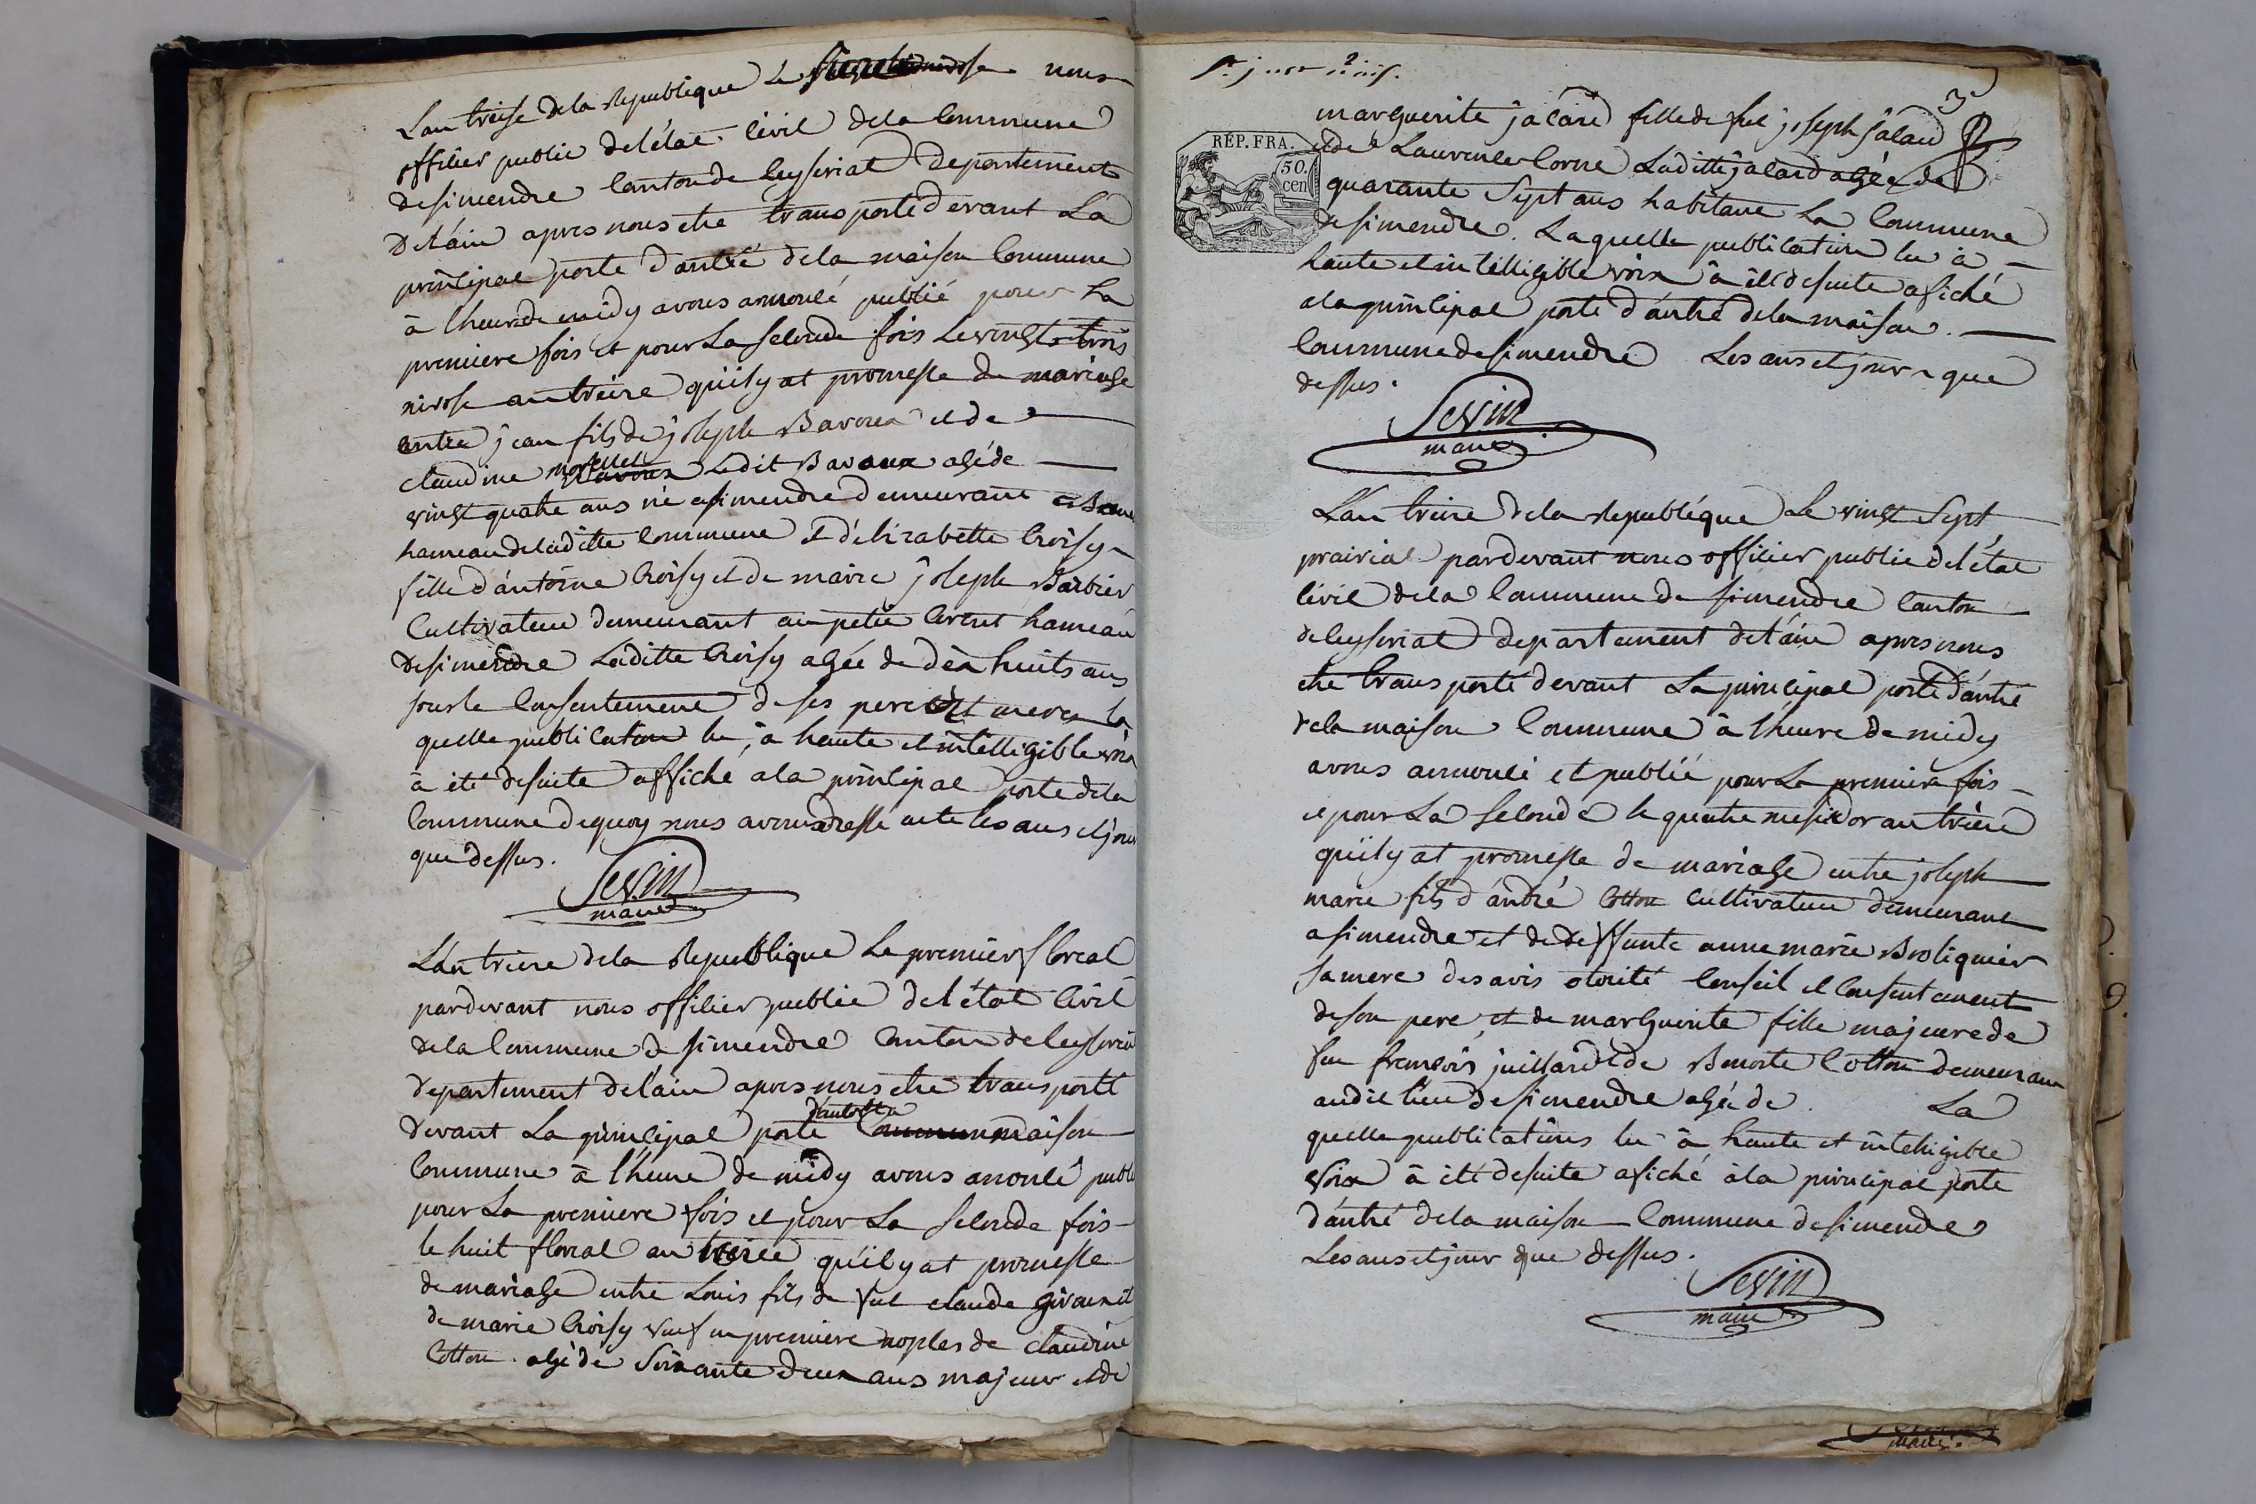 Lan treise dela Republique Le nivose nous
offilier public del'état Civil dela Commune
desimendre Canton de Ceyseriat departement
Del'ain apres nous etre transporté devant La
principal porte d'antré dela maison Commune
à l'heure de midy avons annoncé publié pour La
premiere fois et pour La seconde fois Le vingt trois
nivose an treize quily at promesse de mariage
entre jean fils de joseph Bavoux et de
claudine morellet Ledit Bavoux agé de
vingt quatre ans né asimendre demeurant
hameau deladitte Commune Et d'élizabette Croisy
fille d'antoine Croisy et de marie joseph Barbier
Cultivateur demeurant au petit Corent hameau
desimendre Laditte Croisy agée de dix huits ans
sous le Consentement de ses pere et mere La
quelle publication lu, à haute et intelligible voix
à été desuite affiché ala principal porte dela
Commune dequoy nous avons dressé acte les ans et jour
que dessus.
Sevin
maire
L'an treize dela Republique Le premier floreal
pardevant nous offilier public del'état Civil
dela Commune de simendre Canton de Ceyseriat
departement del'ain apres nous etre transporté
d'antré la
devant La principal porte maison
Commune à l'heure de midy avons anoncé publié
pour La premiere fois et pour La seconde fois
le huit floreal an treize qu'il y at promesse
de mariage entre Louis fils de feu claude giroux et
de marie Croisy veuf en premiere noples de claudine
Cotton agé de soixante deux ans majeur et de
3
marguerite jalard fille de feu joseph jalard
et de Laurence Corne Laditte jalard agée de
RÉP. FRA.
50.
cen
quarante sept ans habitant La Commune
de simendre. Laquelle publication lu à
haute et intelligible voix à été desuite afiché
ala principal porte d'antré dela maison
Commune de simendre Les ans et jour que
dessus.
Sevin
maire
L'an treize dela Republique Le vingt sept
prairial pardevant nous officier public del'état
Civil dela Commune de simendre Canton
de Ceyseriat departement del'ain apres nous
etre transporté devant La principal porte d'antré
dela maison Commune à l'heure de midy
avons annoncé et publié pour La premiere fois
et pour La seconde le quatre mesidor an treize
quily at promesse de mariage entre joseph
marie fils d'andré Cotton Cultivateur demeurant
asimendre et de deffunte anne marie Broliquier
sa mere des avis otorité Conseil et Consentement
de son pere, et de marguerite fille majeure de
feu françois juillard et de Benoite Cotton demeurant
audit lieu de simendre agée de La
quelle publications lu à haute et intelligible
Voix à été desuite afiché à la principal porte
d'antré dela maison Commune desimendre
Les ans et jour que dessus.
Sevin
maire
maire